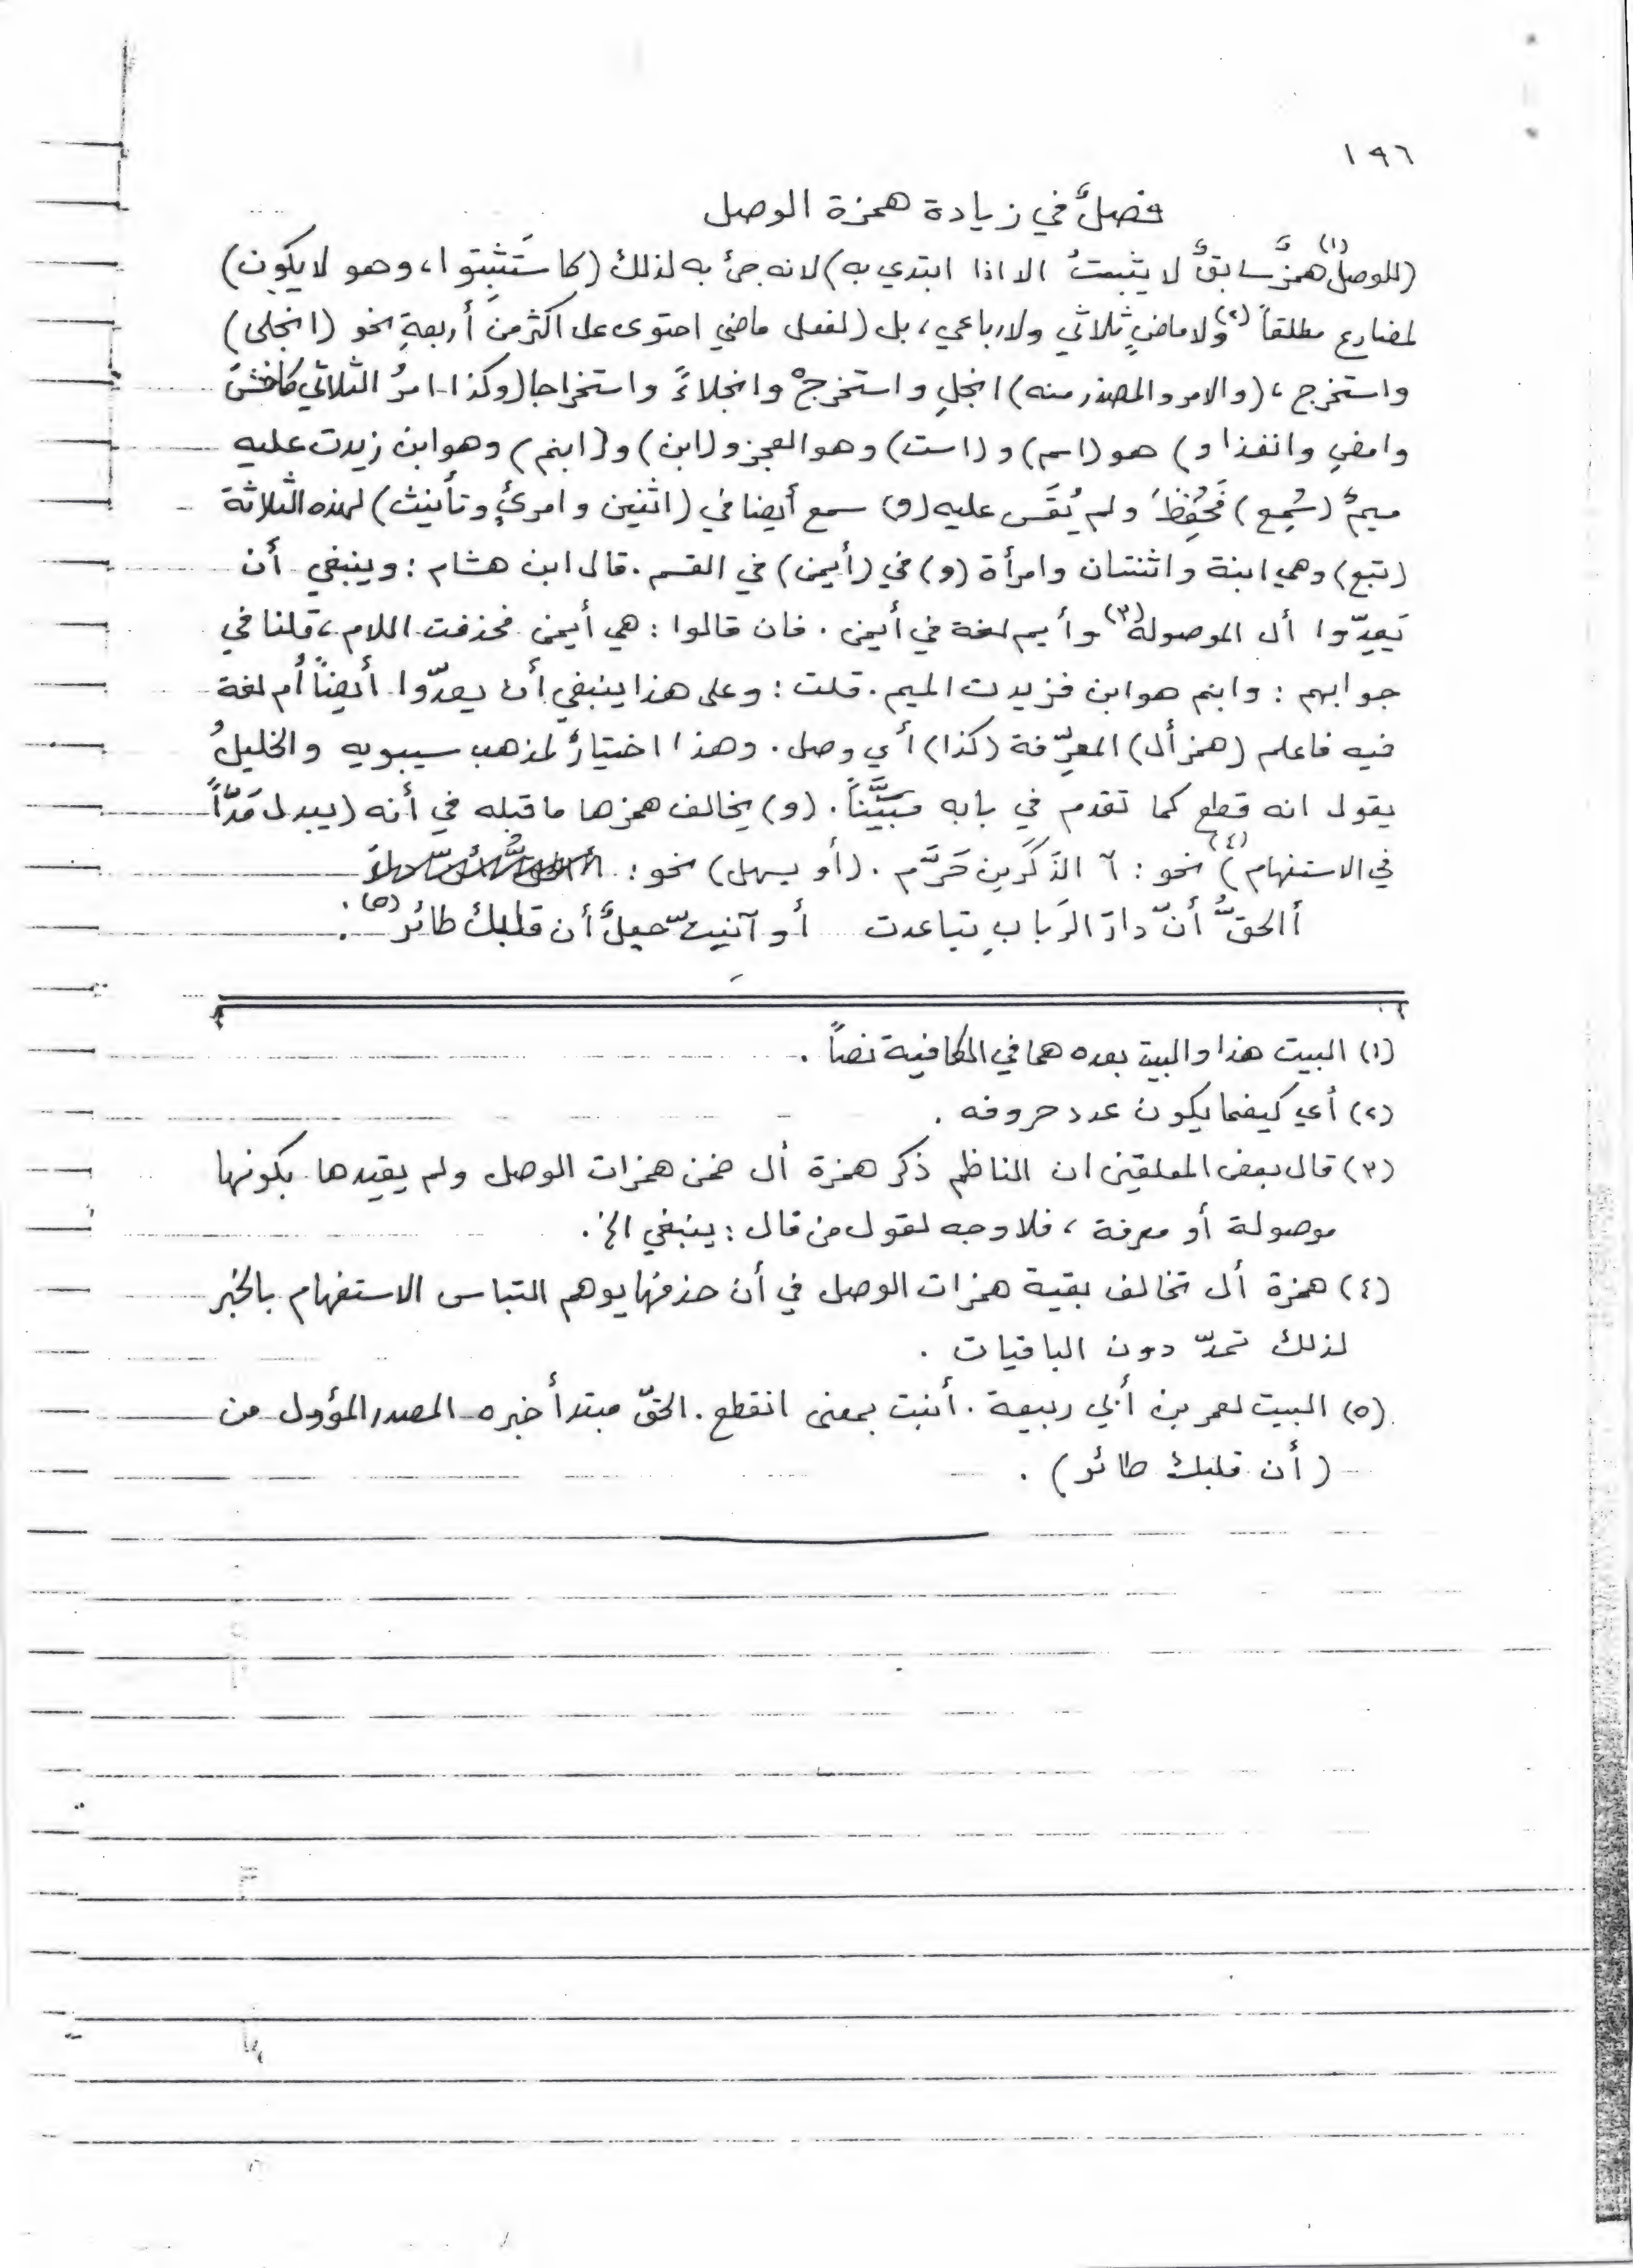 ١٩٦
فصلٌ في زيادة همزة الوصل
(للوصل(١) همزٌ سابقٌ لا يثبتُ الا اذا ابتدي به) لانه جئ به لذلك (كاستَثبِتوا، وهو لا يكون)
لمضارع مطلقاً(٢) ولا ماضٍ ثلاثي ولا رباعي، بل (لفعل ماضي احتوى على اكثر من أربعةٍ نحو (انجلى)
واستخرج، (والامر والمصدر منه) انجلِ واستخرجْ وانجلاءً واستخراجا (وكذا امرُ الثلاثي كاخشَ
وامضِ وانفذا و) هو (اسم) و (است) وهو العجز و (ابن) و (ابنم) وهو ابن زيدت عليه
ميمٌ (سُمِع) فَحُفِظَ ولم يُقَس عليه (و) سمع أيضا في (اثنين وامرئٍ وتأنيث) لهذه الثلاثة
(تبع) وهي ابنة واثنتان وامرأة (و) في (أيمن) في القسم. قال ابن هشام: وينبغي أن
يَعِدّوا أل الموصولة(٣) وأيم لغة في أيمن. فان قالوا: هي أيمن فحذفت اللام، قلنا في
جوابهم: وابنم هو ابن فزيدت الميم. قلت: وعلى هذا ينبغي أن يعدّوا أيضاً أم لغة
فيه فاعلم (همز أل) المعرِّفة (كذا) أي وصل. وهذا اختيارٌ لمذهب سيبويه والخليلُ
يقول انه قطع كما تقدم في بابه مبيَّناً. (و) يخالف همزها ما قبله في أنه (يبدل مَدّاً
في الاستفهام)(٤) نحو: آلذَكَرَين حَرَّم. (أو يسهل) نحو:
أالحقُّ أنّ دارَ الرَبابِ تباعدت أو آنبتّ حبلٌ أن قلبك طائر(٥).
(١) البيت هذا والبيت بعده هما في الكافية نصاً.
(٢) أي كيفما يكون عدد حروفه.
(٣) قال بعض المعلقين ان الناظم ذكر همزة أل ضمن همزات الوصل ولم يقيدها بكونها
موصولة أو معرفة، فلا وجه لقول من قال: ينبغي الخ.
(٤) همزة أل تخالف بقية همزات الوصل في أن حذفها يوهم التباس الاستفهام بالخبر
لذلك تمدّ دون الباقيات.
(٥) البيت لعمر بن أبي ربيعة. أنبت بمعنى انقطع. الحقّ مبتدأ خبره المصدر المؤول من
(أن قلبك طائر).